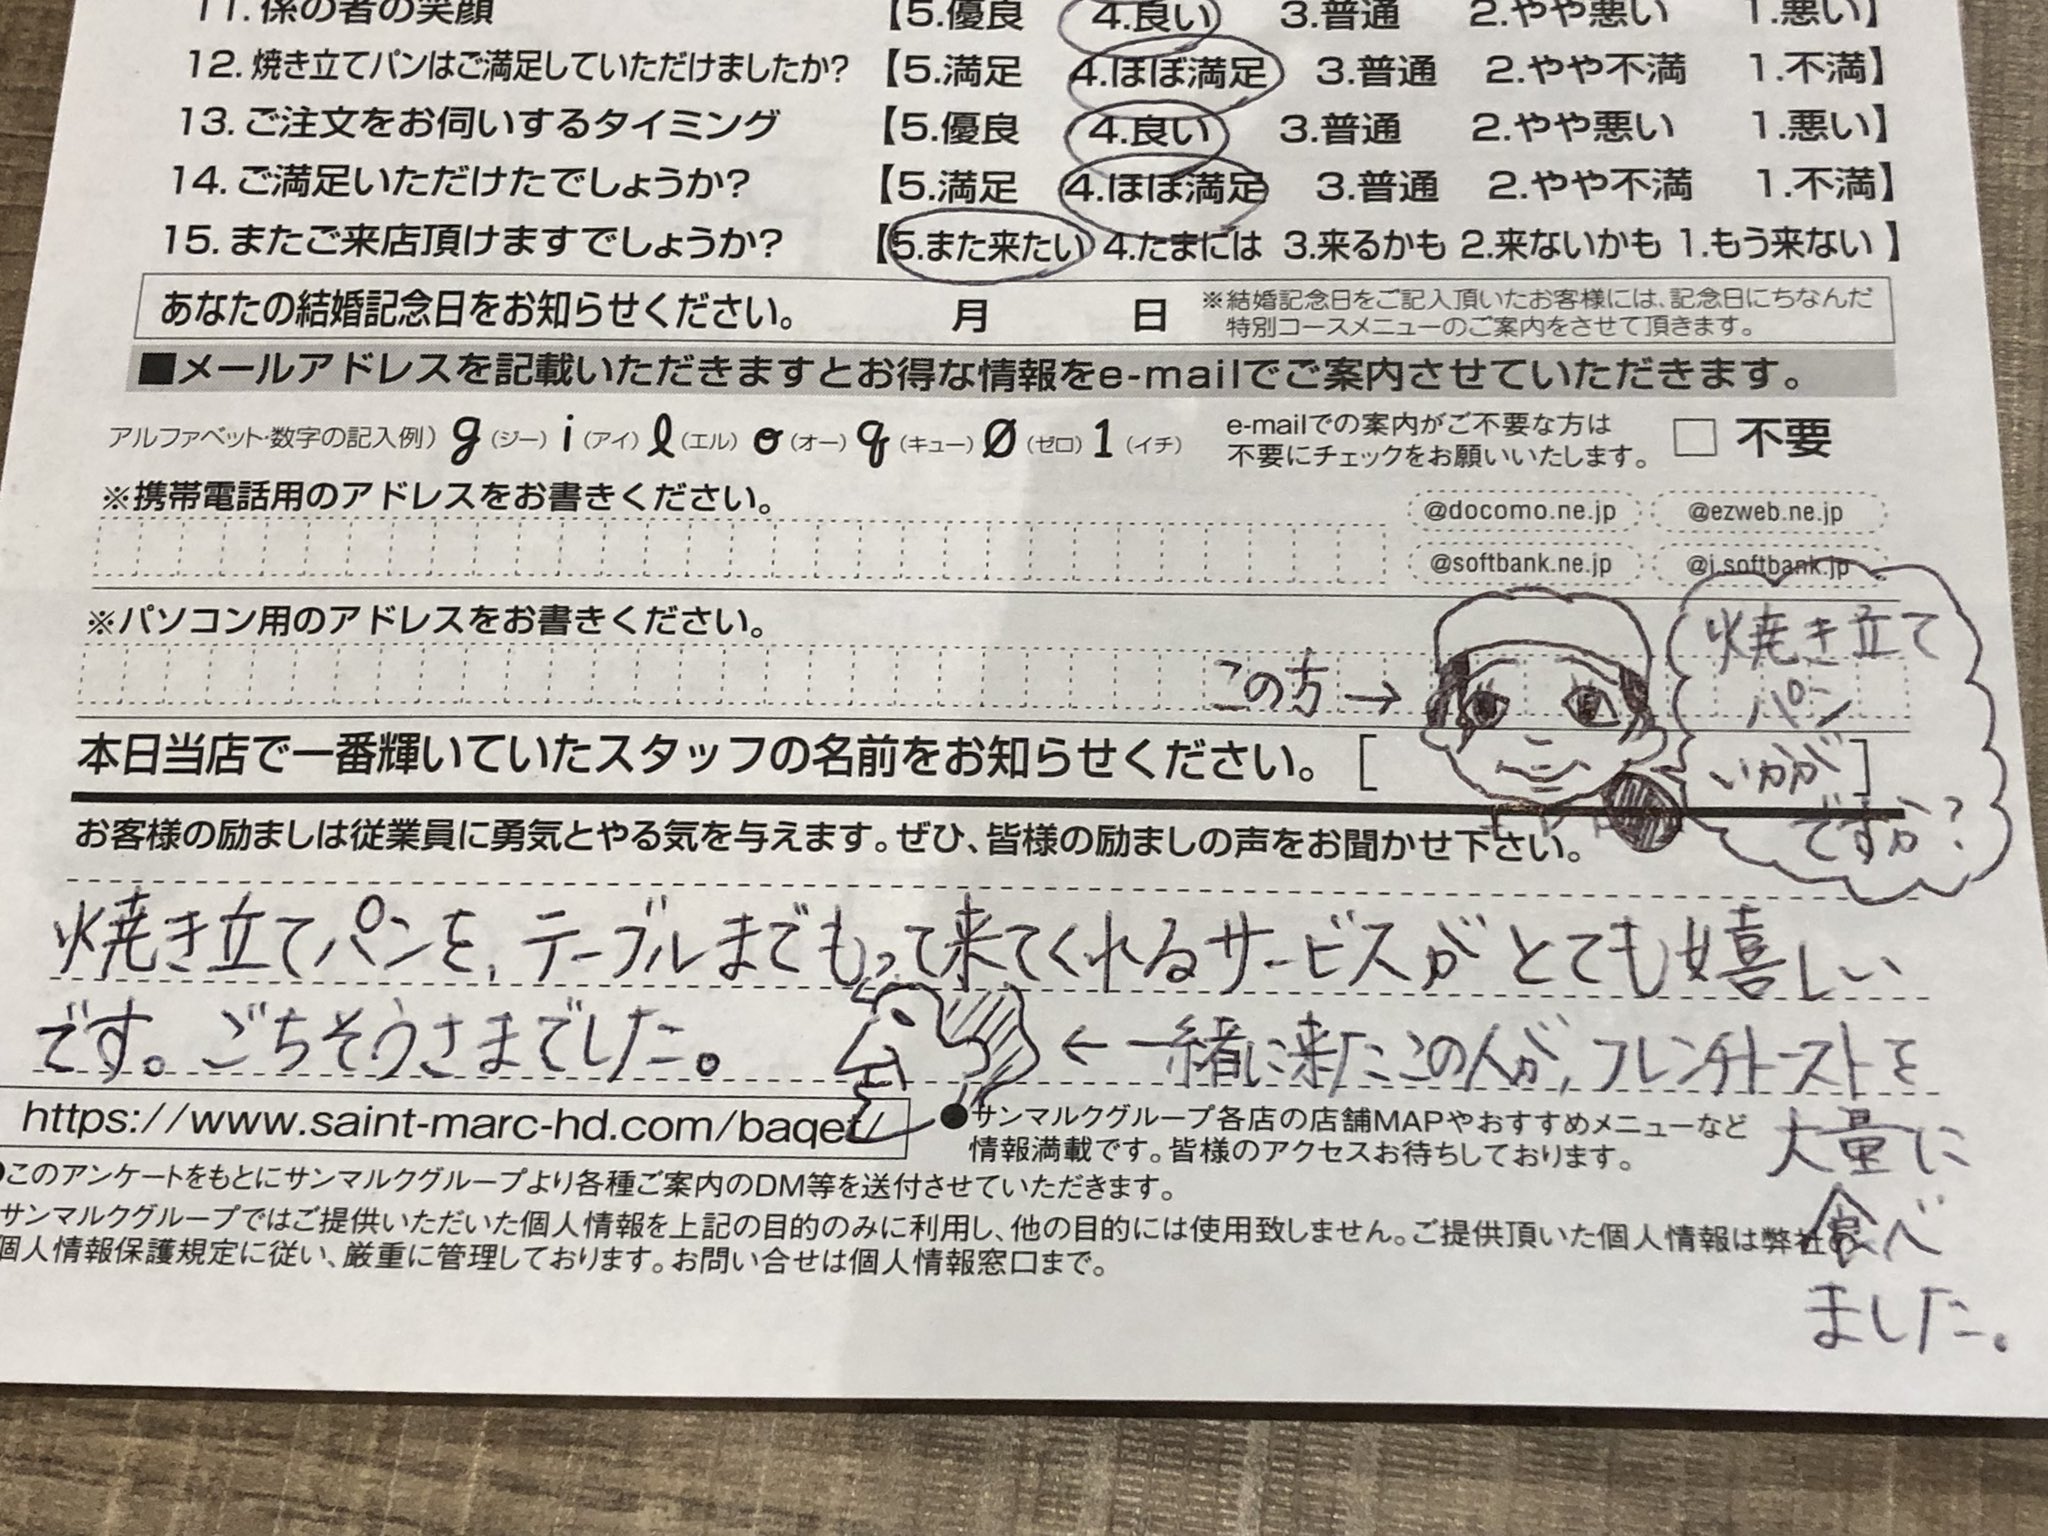 11.係の者の笑顔 【5.優良 4.良い 3.普通 2.やや悪い 1.悪い】
12.焼き立てパンはご満足していただけましたか? 【5.満足 4.ほぼ満足 3.普通 2.やや不満 1.不満】
13.ご注文をお伺いするタイミング 【5.優良 4.良い 3.普通 2.やや悪い 1.悪い】
14.ご満足いただけたでしょうか? 【5.満足 4.ほぼ満足 3.普通 2.やや不満 1.不満】
15.またご来店頂けますでしょうか? 【5.また来たい 4.たまには 3.来るかも 2.来ないかも 1.もう来ない】
あなたの結婚記念日をお知らせください。 月 日
※結婚記念日をご記入頂いたお客様には、記念日にちなんだ
特別コースメニューのご案内をさせて頂きます。
■メールアドレスを記載いただきますとお得な情報をe-mailでご案内させていただきます。
アルファベット・数字の記入例) g(ジー) i(アイ) l(エル) o(オー) q(キュー) 0(ゼロ) 1(イチ)
e-mailでの案内がご不要な方は
不要にチェックをお願いいたします。
□ 不要
※携帯電話用のアドレスをお書きください。
@docomo.ne.jp @ezweb.ne.jp
@softbank.ne.jp @j.softbank.jp
※パソコン用のアドレスをお書きください。
この方→
焼き立て
パン
いかが
ですか?
本日当店で一番輝いていたスタッフの名前をお知らせください。[ ]
お客様の励ましは従業員に勇気とやる気を与えます。ぜひ、皆様の励ましの声をお聞かせ下さい。
焼き立てパンを、テーブルまでもって来てくれるサービスがとても嬉しい
です。ごちそうさまでした。
←一緒に来たこの人が、フレンチトーストを
大量に
食べ
ました。
https://www.saint-marc-hd.com/baqet/
●サンマルクグループ各店の店舗MAPやおすすめメニューなど
情報満載です。皆様のアクセスお待ちしております。
●このアンケートをもとにサンマルクグループより各種ご案内のDM等を送付させていただきます。
サンマルクグループではご提供いただいた個人情報を上記の目的のみに利用し、他の目的には使用致しません。ご提供頂いた個人情報は弊社の
個人情報保護規定に従い、厳重に管理しております。お問い合せは個人情報窓口まで。